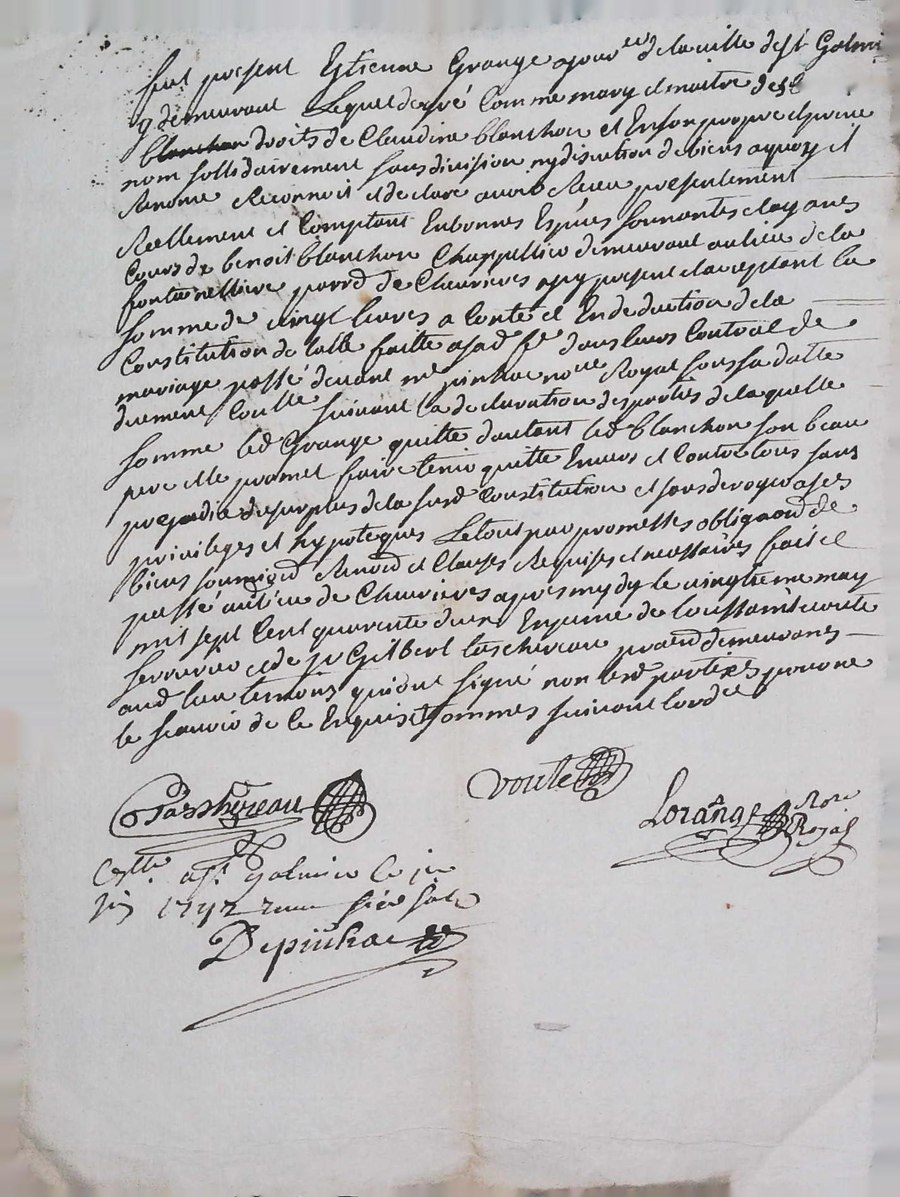 fut present Estienne Grange
y demeurant Lequel de gré comme mary et maitre des
blanchon droits de Claudine blanchon et En son propre et privé
nom sollidairement sans division ny discution de biens a quoy il
Renonce Reconnoit et declare avoir Receu presentement
Reellement et Comptant En bonnes Espèces sonnantes et ayans
Cours de benoit blanchon Chappellier demeurant au lieu de la
fontanelliere parr de Chevrieres a present et acceptant la
somme de vingt livres a Conte et En deduction de la
Constitution de faitte a dans leurs Contrat de
mariage passé devant me pinhac no Royal sous sa datte
duement suivant la declaration des parties de laquelle
somme led Grange quitte d'autant led blanchon son beau
pere et le promet faire tenir quitte Envers et Contre tous sans
prejudice du surplus de la Constitution et sans deroger a ses
privileges et hypoteques Le tout par promesses obligaon de
biens Renon et Clauses Requises et necessaires fait et
passé aud lieu de Chevrieres apres mydy le vingtieme may
mil sept Cent quarante deux En pnce de voute
serrurier et de sr Gilbert demeurans
aud lieu temoins qui ont signé non lesd parties pour ne
le scavoir de ce Enquis et sommés suivant lord
Voute
Lorange Nore
Royal
Colle a St galmier
1742
Depinhac